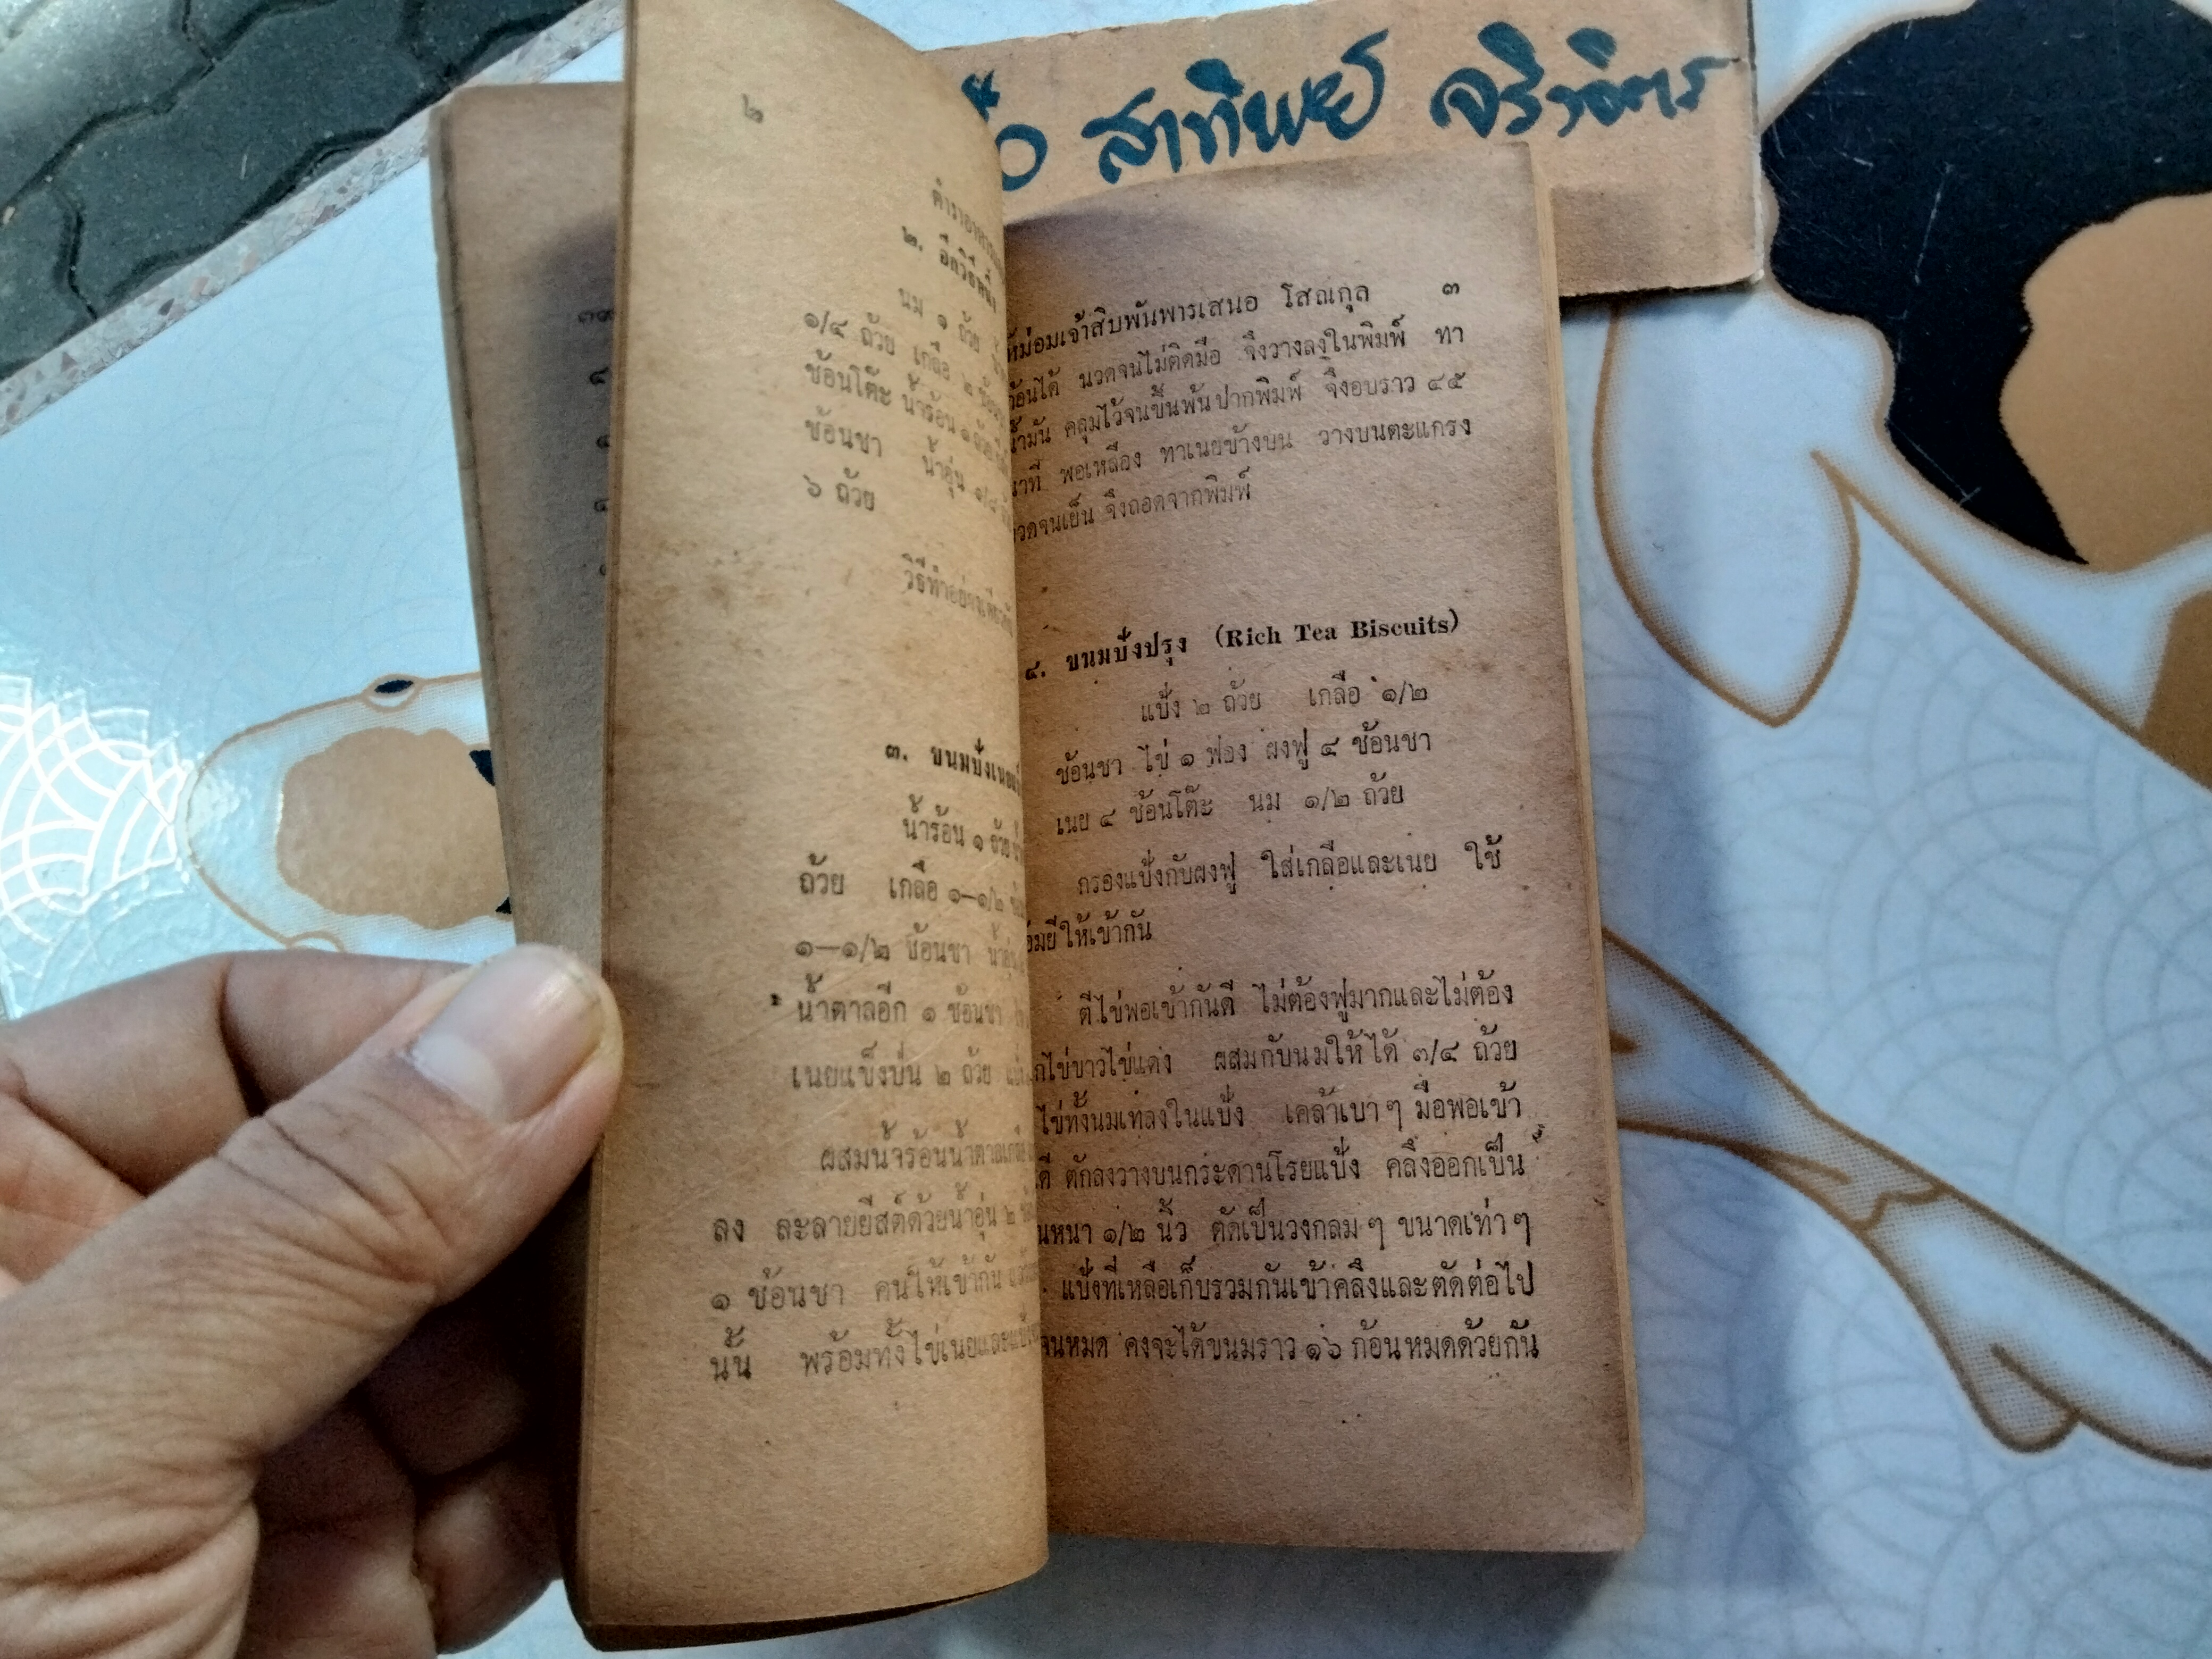 สาทิพย์ จริงจิตร
๒
๒. อีกวิธีหนึ่ง
นม ๑ ถ้วย
๑/๔ ถ้วย เกลือ ๒
ช้อนโต๊ะ น้ำร้อน ๑
ช้อนชา น้ำอุ่น ๑/๔
๖ ถ้วย
วิธีทำอย่างเดียว
๓. ขนมปังเนย
น้ำร้อน ๑ ถ้วย
ถ้วย เกลือ ๑—๑/๒
๑—๑/๒ ช้อนชา น้ำอุ่น
น้ำตาลอีก ๑ ช้อนชา
เนยแข็งป่น ๒ ถ้วย
ผสมน้ำร้อนน้ำตาล
ลง ละลายยีสต์ด้วยน้ำอุ่น ๒
๑ ช้อนชา คนให้เข้ากัน
นั้น พร้อมทั้งไข่เนยและแป้ง
หม่อมเจ้าสิบพันพารเสนอ โสณกุล ๓
ก้อนได้ นวดจนไม่ติดมือ จึงวางลงในพิมพ์ ทา
น้ำมัน คลุมไว้จนขึ้นพ้นปากพิมพ์ จึงอบราว ๔๕
นาที พอเหลือง ทาเนยข้างบน วางบนตะแกรง
ลวดจนเย็น จึงถอดจากพิมพ์
๔. ขนมปังปรุง (Rich Tea Biscuits)
แป้ง ๒ ถ้วย เกลือ ๑/๒
ช้อนชา ไข่ ๑ ฟอง ผงฟู ๔ ช้อนชา
เนย ๔ ช้อนโต๊ะ นม ๑/๒ ถ้วย
กรองแป้งกับผงฟู ใส่เกลือและเนย ใช้
ส้อมยีให้เข้ากัน
ตีไข่พอเข้ากันดี ไม่ต้องฟูมากและไม่ต้อง
ไข่ขาวไข่แดง ผสมกับนมให้ได้ ๓/๔ ถ้วย
ไข่ทั้งนมเทลงในแป้ง เคล้าเบา ๆ มือพอเข้า
ดี ตักลงวางบนกระดานโรยแป้ง คลึงออกเป็น
หนา ๑/๒ นิ้ว ตัดเป็นวงกลม ๆ ขนาดเท่า ๆ
แป้งที่เหลือเก็บรวมกันเข้าคลึงและตัดต่อไป
จนหมด คงจะได้ขนมราว ๑๖ ก้อนหมดด้วยกัน